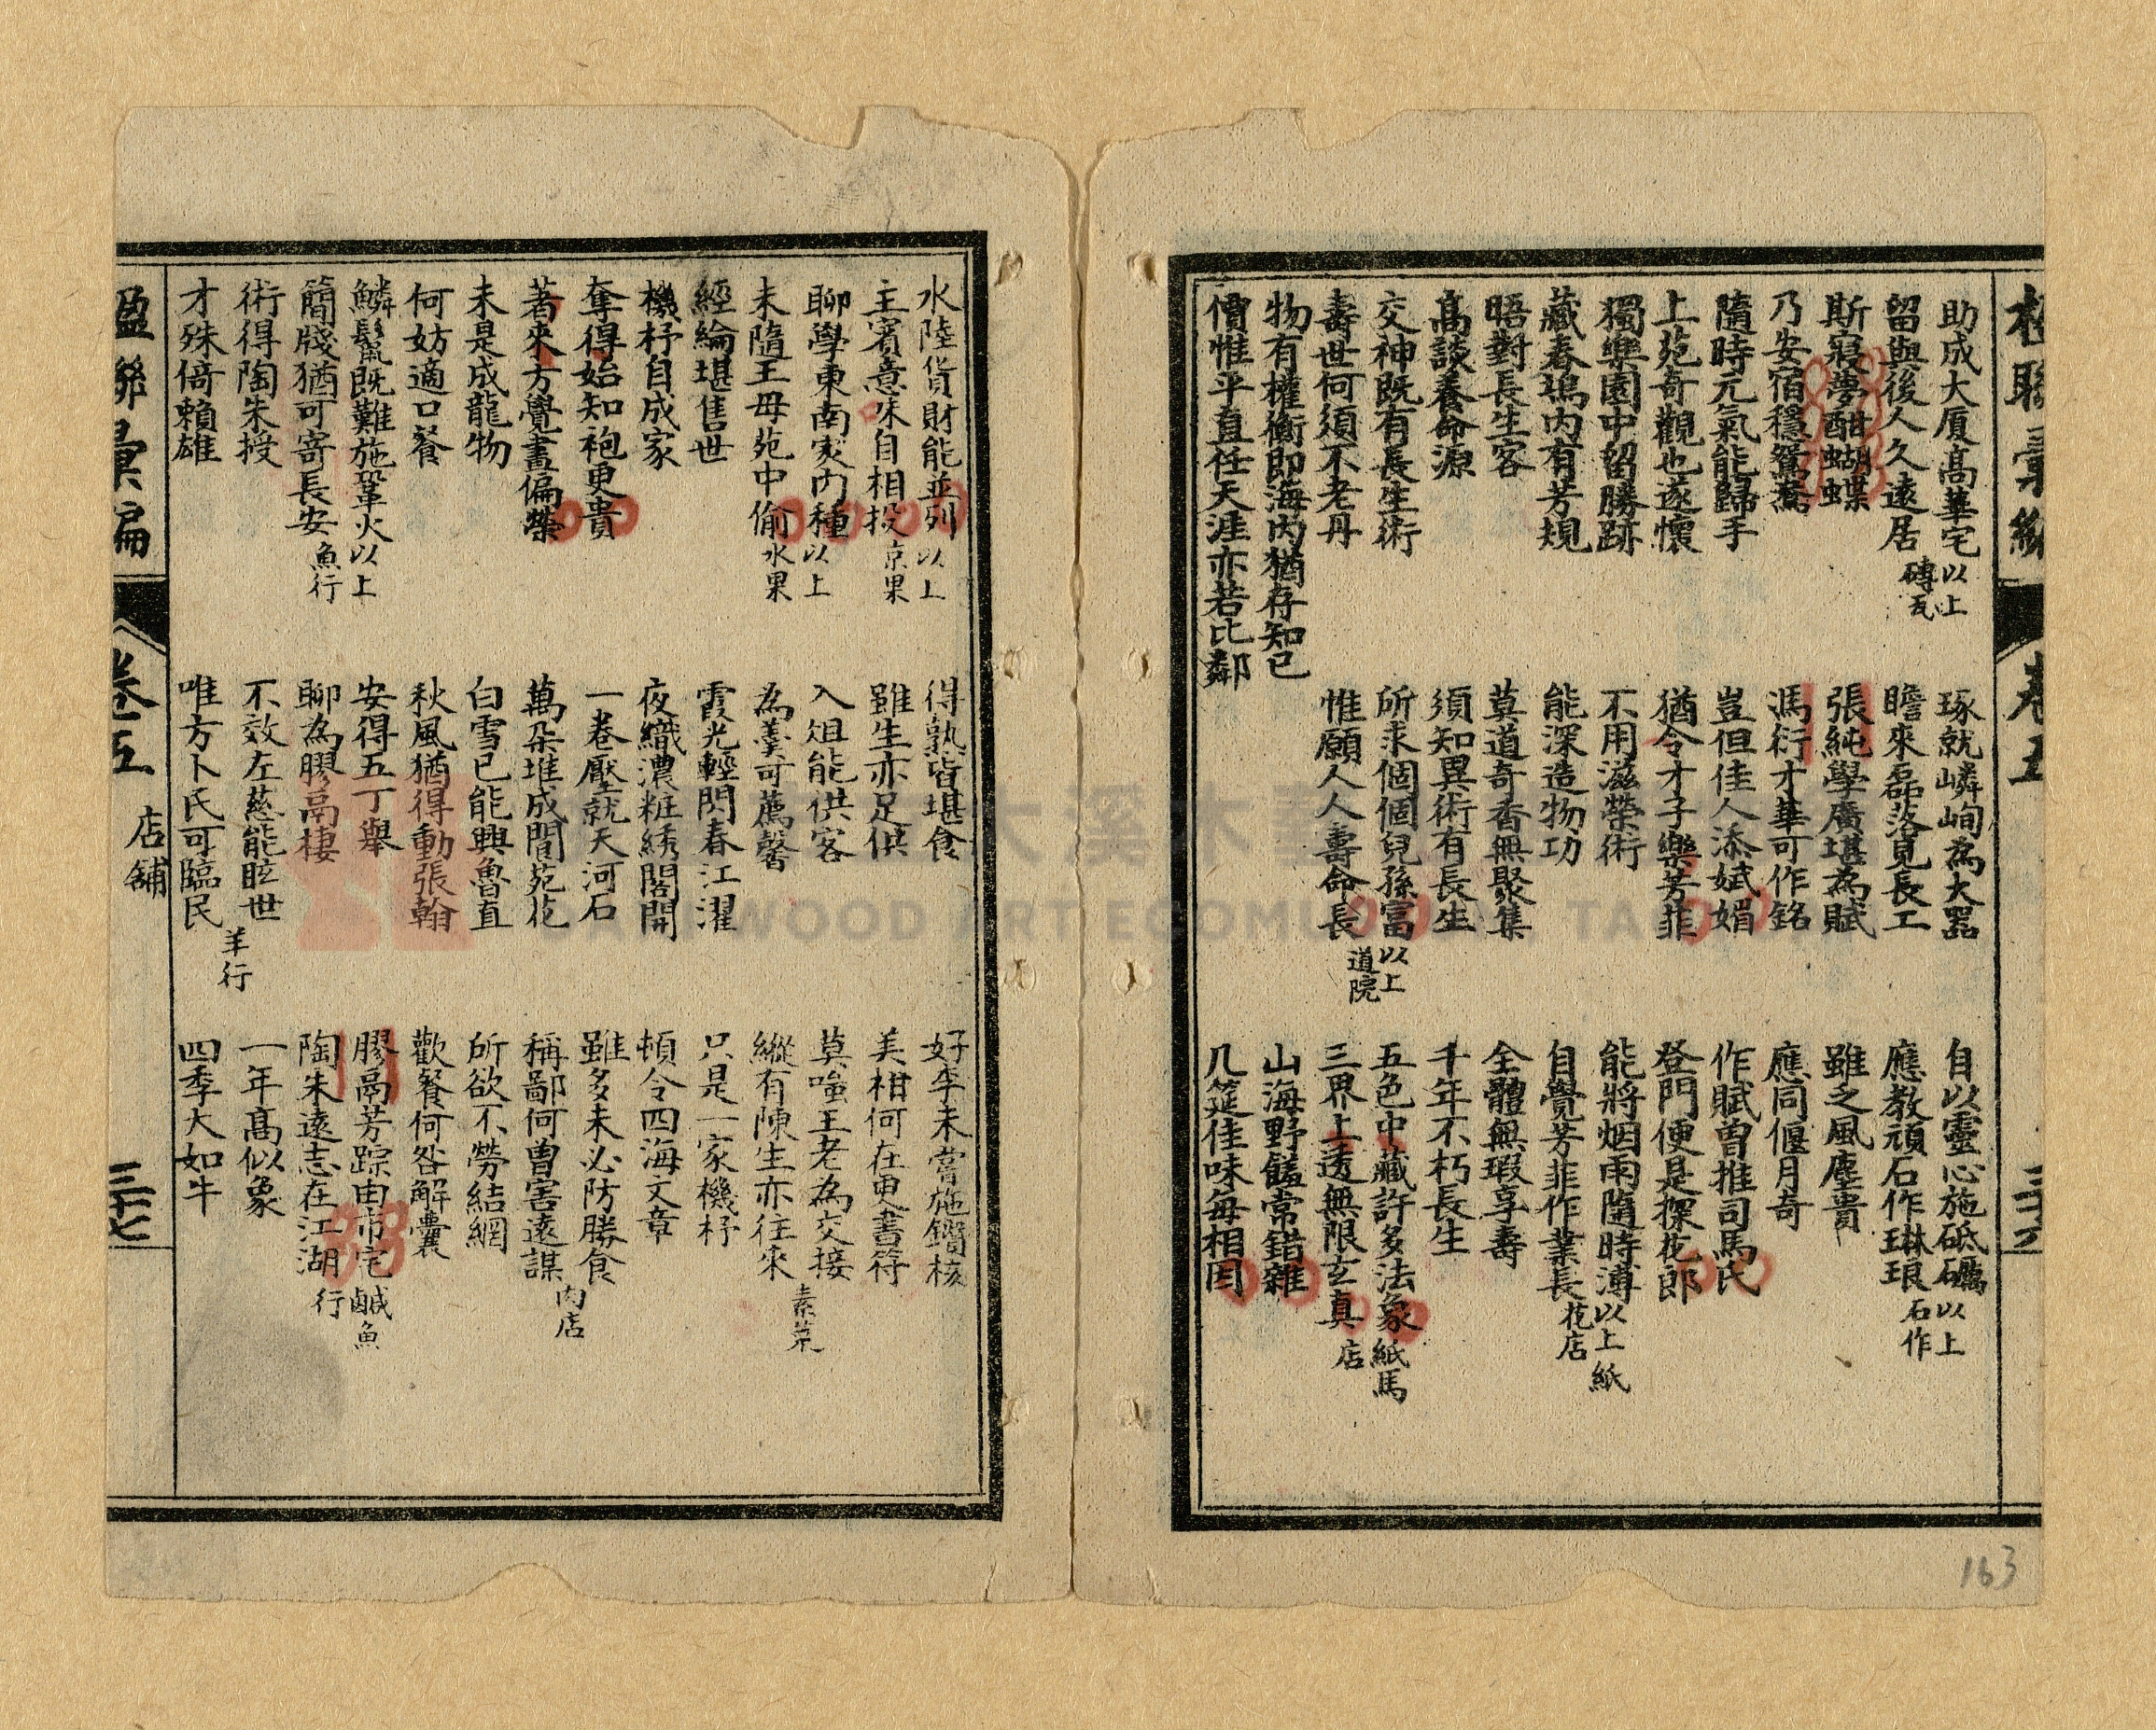 助成大厦高華宅
留與後人久遠居
以上磚瓦
琢就嶙峋為大器
瞻來磊落見長工
自以靈心施砥礪
應教頑石作琳琅
以上石作
斯寢夢酣蝴蝶
乃安宿穩鴛鴦
張純學廣堪為賦
馮衍才華可作銘
雖乏風塵貴
應同偃月奇
隨時元氣能歸手
上苑奇觀也遂懷
豈但佳人添娬媚
猶令才子樂芳菲
作賦曾推司馬氏
登門便是探花郎
獨樂園中留勝跡
藏春塢內有芳規
不用滋榮術
能深造物功
能將烟雨隨時溥
自覺芳菲作業長
以上花店
晤對長生客
高談養命源
莫道奇香無聚集
須知異術有長生
全體無瑕享壽
千年不朽長生
交神既有長生術
壽世何須不老丹
所求個個兒孫富
惟願人人壽命長
以上道院
五色中藏許多法象
三界上透無限玄真
紙紙馬店
物有權衡即海內猶存知已
價惟平直任天涯亦若比鄰
山海野饈常錯雜
几筵佳味每相因
卷五
水陸貨財能並列
主賓意味自相投
以上京果
得熟皆堪食
雖生亦足供
好李未嘗施鑽核
美柑何在更書符
聊學東南家內種
未隨王母苑中偷
以上水果
入俎能供客
為羹可薦馨
莫嗤王老為交接
縱有陳生亦往來
素菜
經綸堪售世
機杼自成家
霞光輕閃春江濯
夜織濃粧綉閣開
只是一家機杼
頓令四海文章
奪得始知袍更貴
著來方覺晝偏榮
一卷壓就天河石
萬朶堆成閬苑花
雖多未必防勝食
稱鄙何曾害遠謀
肉店
未是成龍物
何妨適口餐
白雪已能興魯直
秋風猶得動張翰
所欲不勞結網
歡餐何咎解囊
鱗鬣既難施鞏火
簡牋猶可寄長安
以上魚行
安得五丁舉
聊為膠鬲棲
膠鬲芳踪由市宅
陶朱遠志在江湖
鹹魚行
術得陶朱授
才殊倚賴雄
不效左慈能眩世
唯方卜氏可臨民
羊行
一年高似象
四季大如牛
楹聯彙編
卷五
店舖
三十七
163